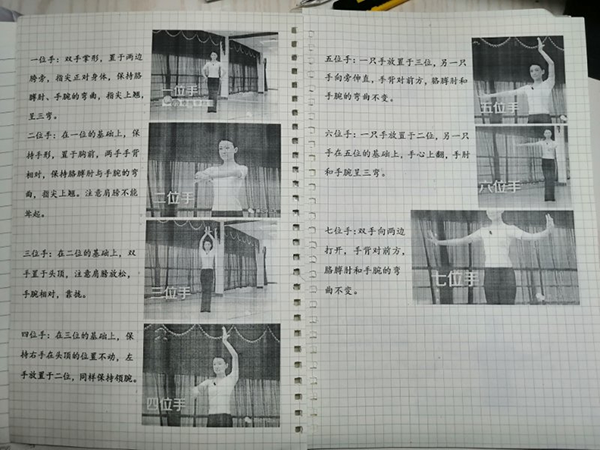 一位手：双手掌形，置于两边
胯旁，指尖正对身体，保持胳
膊肘、手腕的弯曲，指尖上翘，
呈三弯。
一位手
二位手：在一位的基础上，保
持手形，置于胸前，两手手背
相对，保持胳膊肘与手腕的弯
曲，指尖上翘。注意肩膀不能
耸起。
二位手
三位手：在二位的基础上，双
手置于头顶，注意肩膀放松，
手腕相对，靠拢。
三位手
四位手：在三位的基础上，保
持右手在头顶的位置不动，左
手放置于二位，同样保持领腕。
四位手
五位手：一只手放置于三位，另一只
手向旁伸直，手背对前方，胳膊肘和
手腕的弯曲不变。
五位手
六位手：一只手放置于二位，另一只
手在五位的基础上，手心上翻，手肘
和手腕呈三弯。
六位手
七位手：双手向两边
打开，手背对前方，
胳膊肘和手腕的弯
曲不变。
七位手